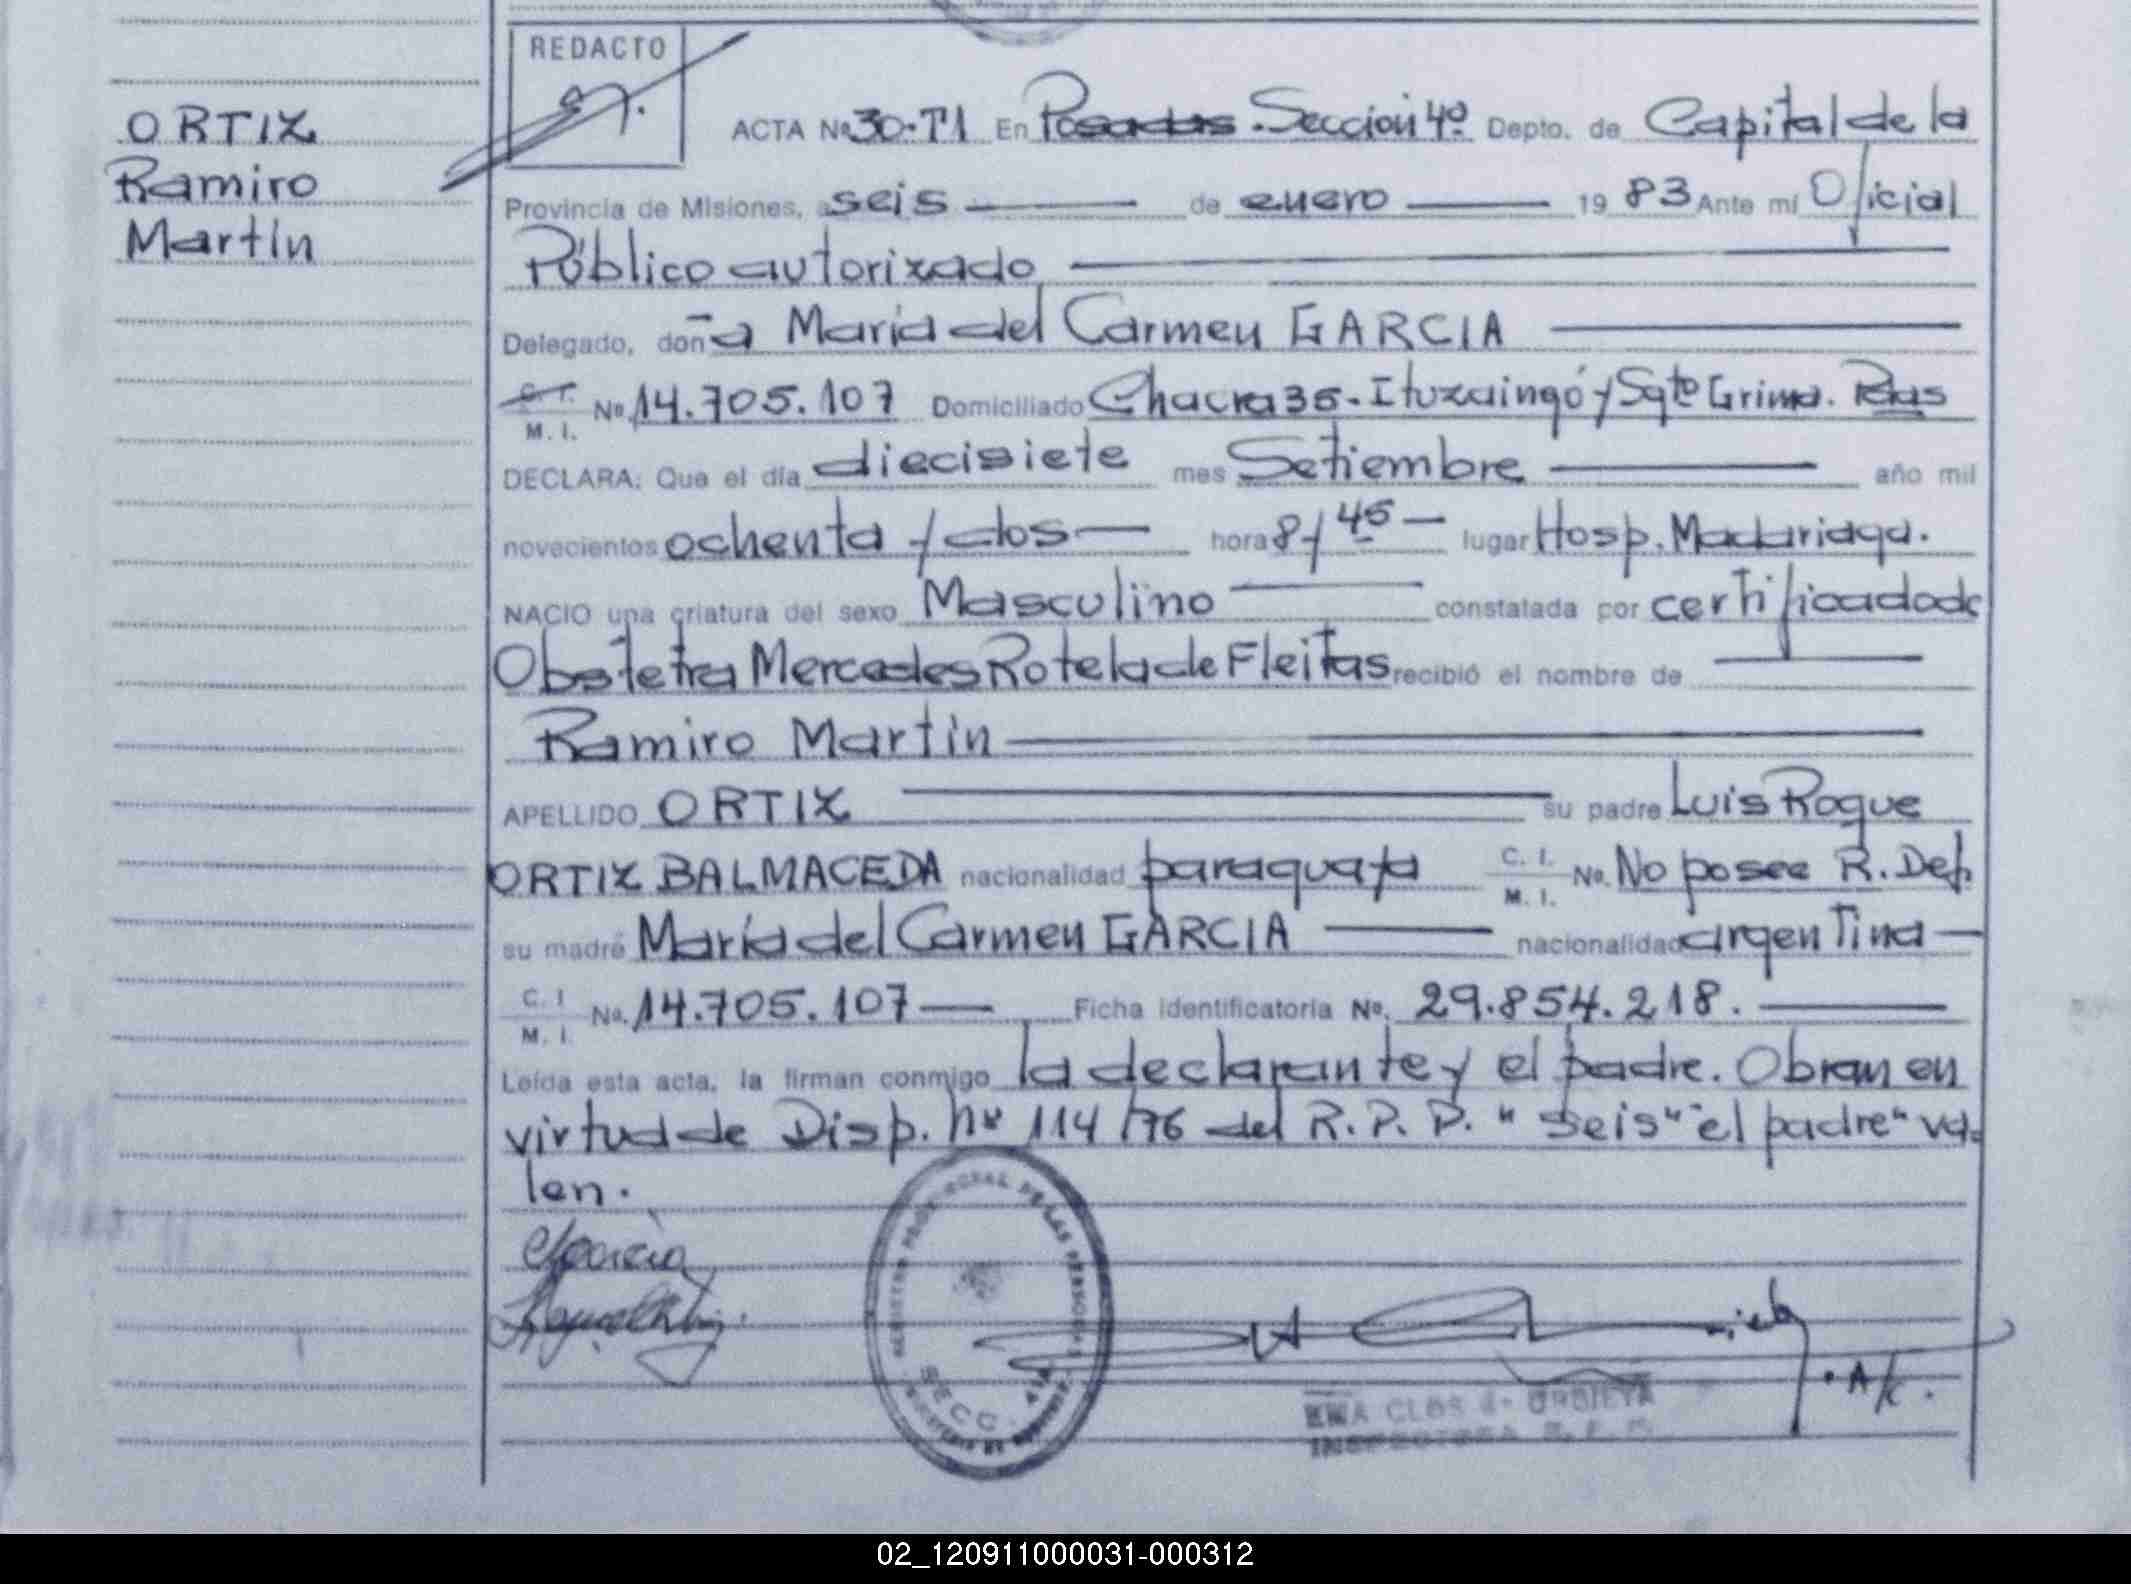 REDACTO
ORTIZ
Ramiro
Martín
ACTA Nº 30-T1 En Posadas. Sección 4º Depto. de Capital de la
Provincia de Misiones, a seis de enero 19 83 Ante mí Oficial
Público autorizado
Delegado, doña María del Carmen GARCIA
C. I.
M. I. Nº 14.705.107 Domiciliado Chacra 35 - Ituzaingó y Sgto Grima. Pdas
DECLARA: Que el día diecisiete mes Setiembre año mil
novecientos ochenta y dos hora 8 y 45 lugar Hosp. Madariaga.
NACIO una criatura del sexo Masculino constatada por certificado de
Obstetra Mercedes Rotela de Fleitas recibió el nombre de
Ramiro Martín
APELLIDO ORTIZ su padre Luis Roque
ORTIZ BALMACEDA nacionalidad paraguaya C. I. M. I. Nº No posee R. Def.
su madre María del Carmen GARCIA nacionalidad argentina
C. I
M. I. Nº 14.705.107 Ficha identificatoria Nº. 29.854.218.
Leída esta acta, la firman conmigo la declarante y el padre. Obran en
virtud de Disp. nº 114/76 del R. P. P. "seis" "el padre" va-
len.
REGISTRO PROVINCIAL DE LAS PERSONAS
SECC. 4ta
A/c.
CLOS de
INSPECTORA R. P. P.
02_120911000031-000312